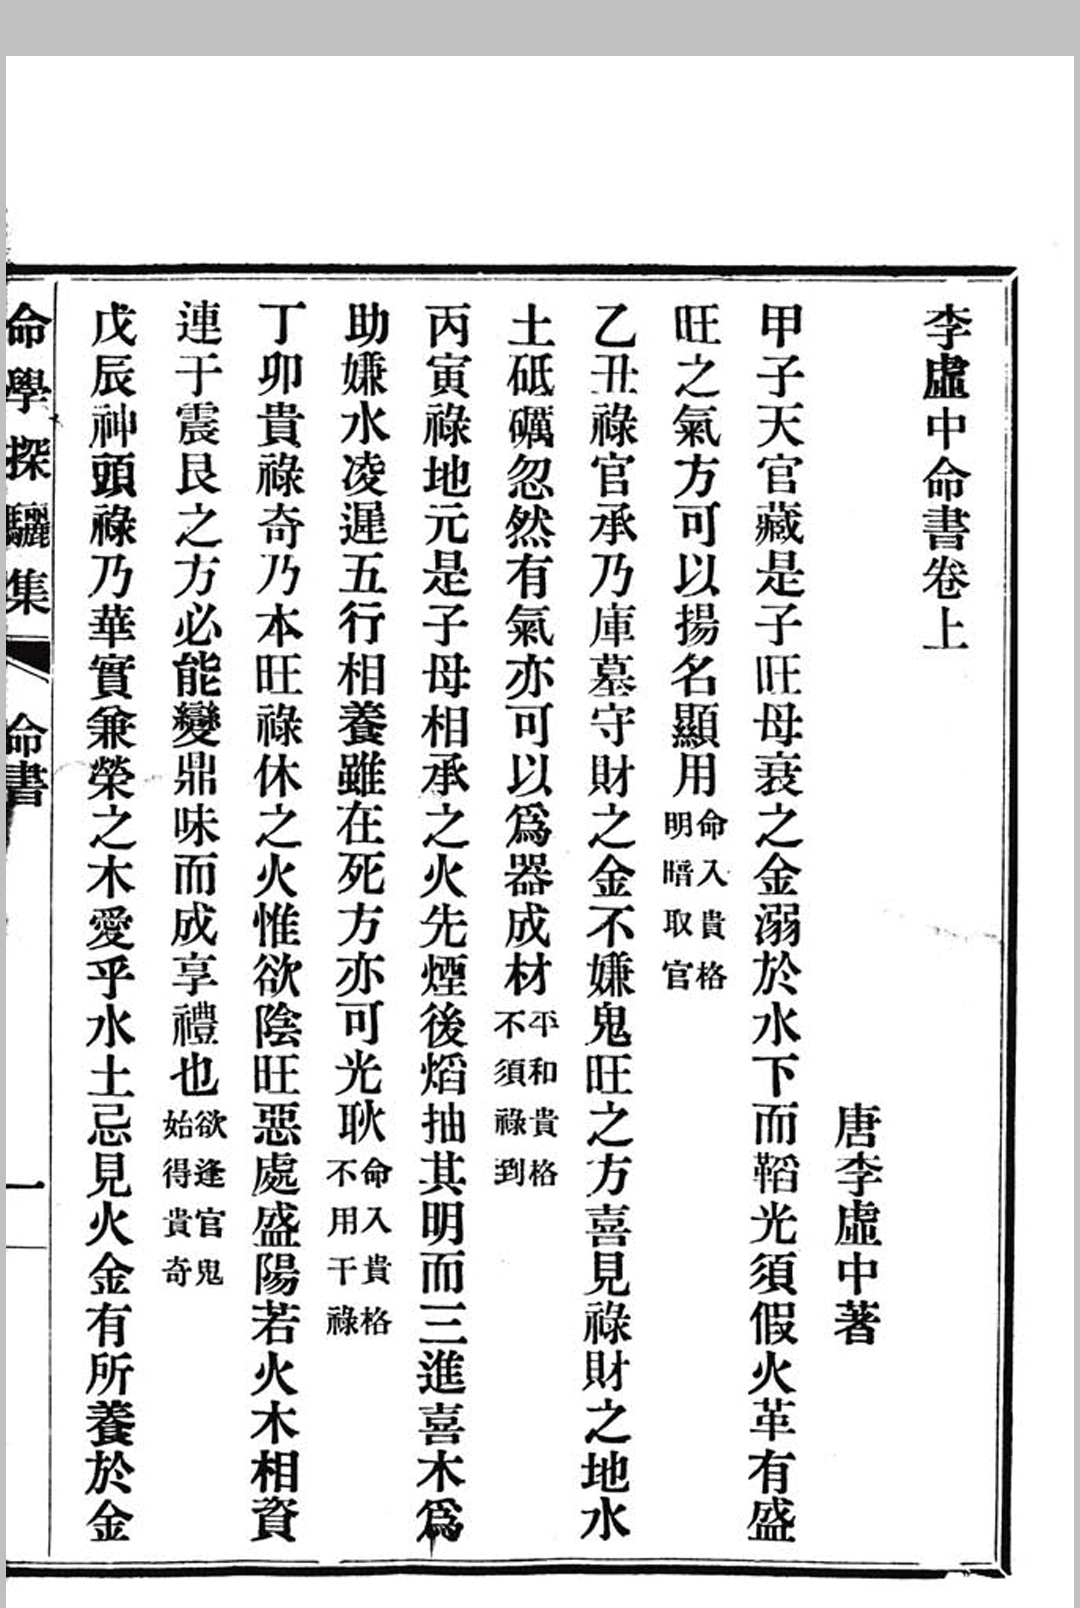 李虛中命書卷上
唐李虛中著
甲子天官藏是子旺母衰之金溺於水下而韜光須假火革有盛
旺之氣方可以揚名顯用命入貴格明暗取官
乙丑祿官承乃庫墓守財之金不嫌鬼旺之方喜見祿財之地水
土砥礪忽然有氣亦可以爲器成材平和貴格不須祿到
丙寅祿地元是子母相承之火先煙後焰抽其明而三進喜木爲
助嫌水凌遲五行相養雖在死方亦可光耿命入貴格不用干祿
丁卯貴祿奇乃本旺祿休之火惟欲陰旺惡處盛陽若火木相資
連于震艮之方必能變鼎味而成享禮也欲逢官鬼始得貴奇
戊辰神頭祿乃華實兼榮之木愛乎水土忌見火金有所養於金
命學探驪集
命書
一